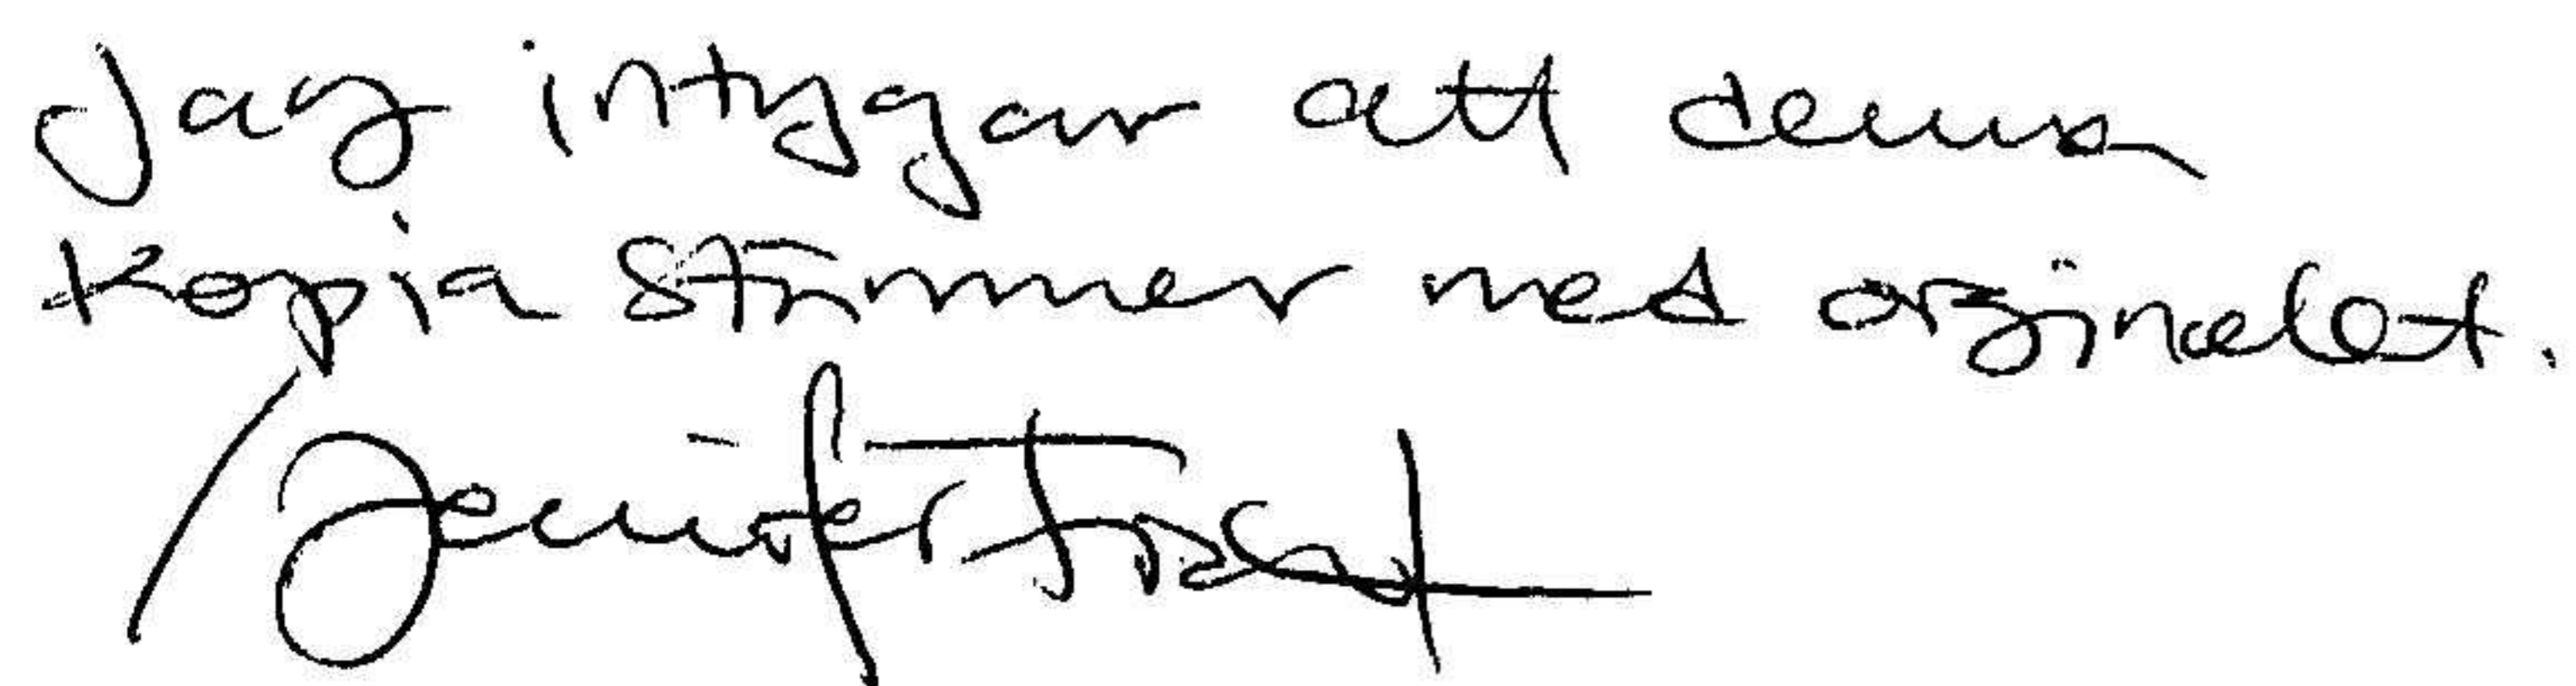 Jag intygar att denna
kopia stämmer med orginalet.
/Jennifer